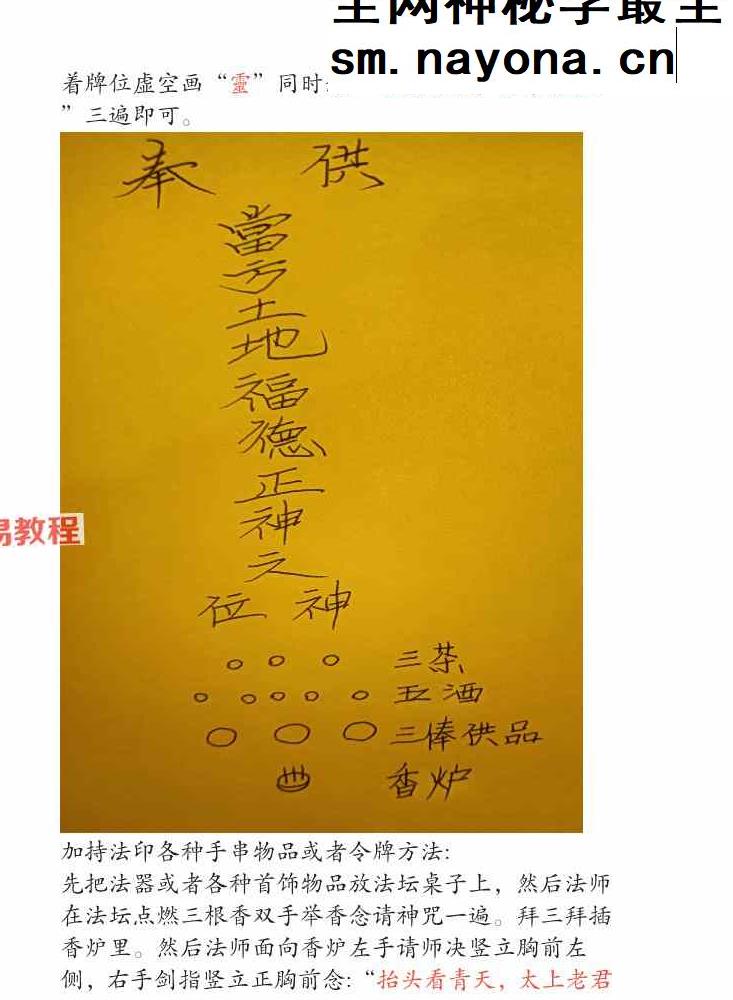 sm.nayona.cn
着牌位虚空画“靈”同时
”三遍即可。
奉 供
當
方
土
地
福
德
正
神
之
位 神
三茶
五酒
三俸供品
香炉
易教程
加持法印各种手串物品或者令牌方法：
先把法器或者各种首饰物品放法坛桌子上，然后法师
在法坛点燃三根香双手举香念请神咒一遍。拜三拜插
香炉里。然后法师面向香炉左手请师决竖立胸前左
侧，右手剑指竖立正胸前念：“抬头看青天，太上老君